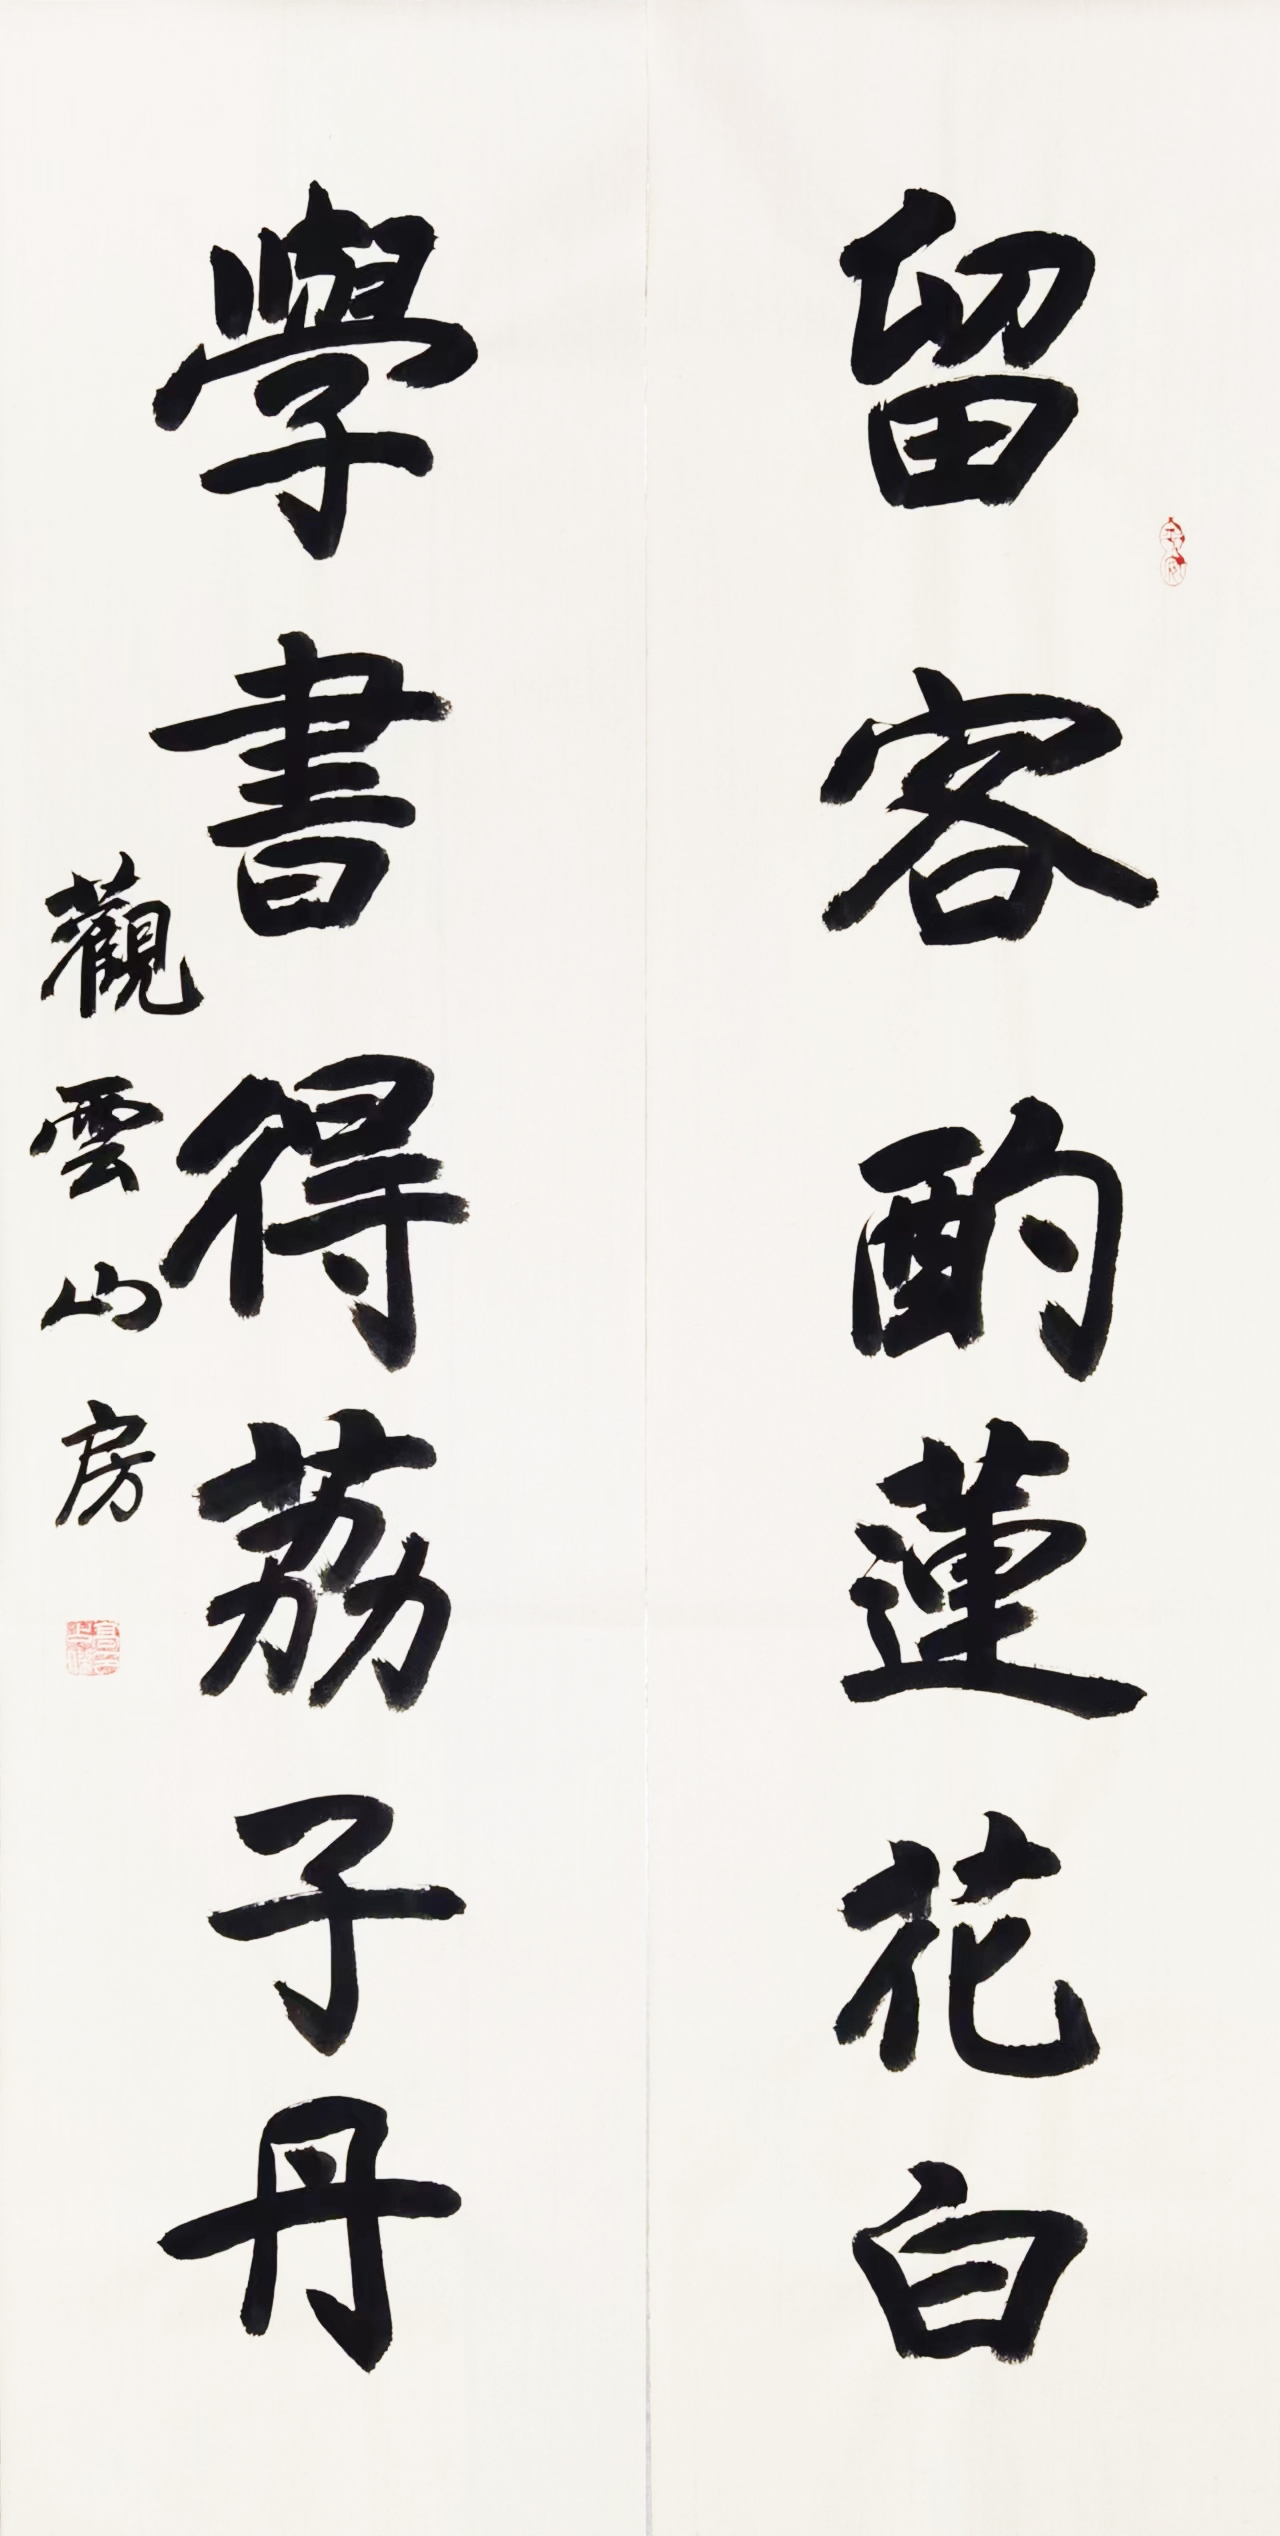 留客酌蓮花白
學書得荔子丹
觀雲山房